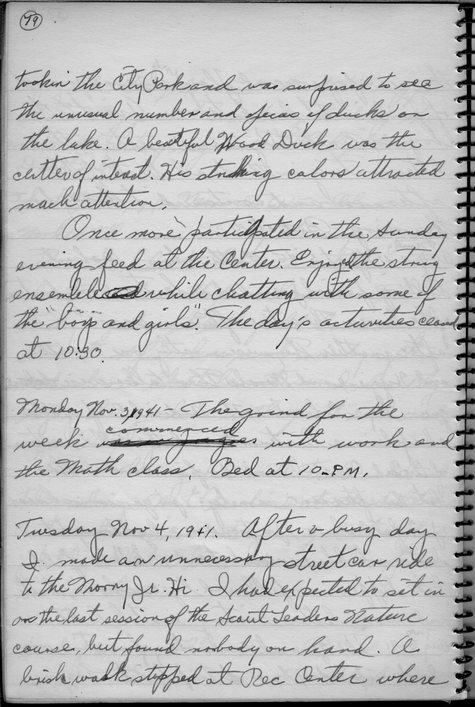 79
took in the City Park and was surprised to see
the unusual number and specias of ducks on
the lake. A beatiful Wood Duck was the
of intrest. His striking colors attracted
much attention.
Once more participated in the Sunday
evening feed at the Center. Enjoyed the string
ensemble while chatting with some of
the "boys and girls". The day's activities ceased
at 10:30.
Monday Nov. 3, 1941 - The grind for the
week commenced with work and
the Math class. Bed at 10 - PM.
Tuesday Nov 4, 1941. After a busy day
I made an unnecessary street car ride
to the Morey Jr. Hi. I had expected to set in
on the last session of the Scout Leaders Nature
course, but found nobody on hand. A
brisk walk stopped at Rec Center where